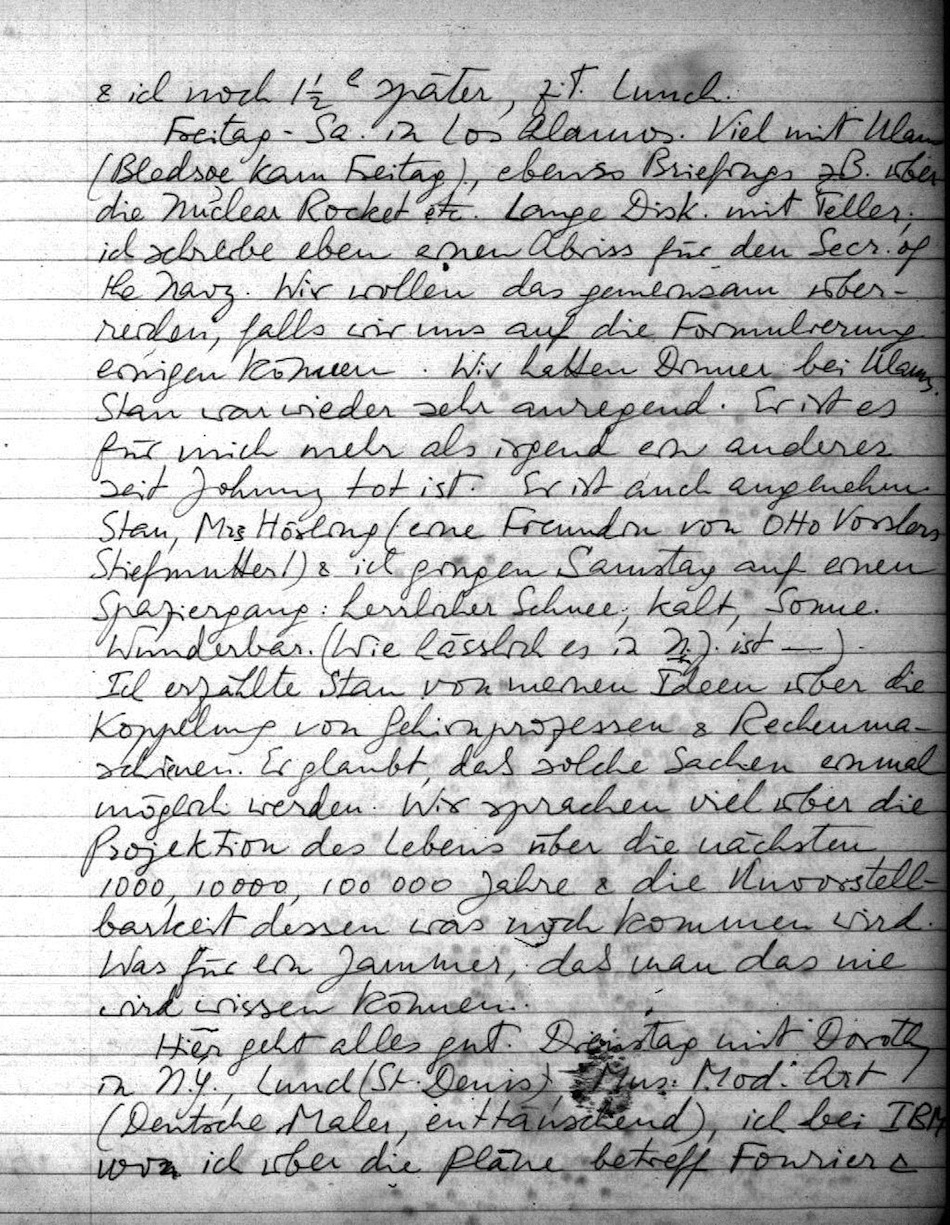 & ich noch 1½ h später, z.T. Lunch.
Freitag - Sa. in Los Alamos. Viel mit Ulam
(Bledsoe kam Freitag), ebenso Briefings zB. über
die Nuclear Rocket etc. Lange Disk. mit Teller;
ich schreibe eben einen Abriss für den Secr. of
the Navy. Wir wollen das gemeinsam über-
reichen, falls wir uns auf die Formulierung
einigen können. Wir hatten Dinner bei Ulams.
Stan war wieder sehr anregend. Er ist es
für mich mehr als irgend ein anderer
seit Johnny tot ist. Er ist auch angenehm.
Stan, Mrs (eine Freundin von Otto Vosslers
Stiefmutter!) & ich gingen Samstag auf einen
Spaziergang: herrlicher Schnee, kalt, Sonne.
Wunderbar. (Wie hässlich es in N.J. ist —).
Ich erzählte Stan von meinen Ideen über die
Koppelung von Gehirnprozessen & Rechenma-
schinen. Er glaubt, daß solche Sachen einmal
möglich werden. Wir sprachen viel über die
Projektion des Lebens über die nächsten
1000, 10000, 100 000 Jahre & die Unvorstell-
barkeit dessen was noch kommen wird.
Was für ein Jammer, daß man das nie
wird wissen können.
Hier geht alles gut. Dienstag mit Dorothy
in N.Y., Lunch (St. Denis), Mus. Mod. Art
(Deutsche Maler, enttäuschend), ich bei IBM
wo ich über die Pläne betreff Fourier